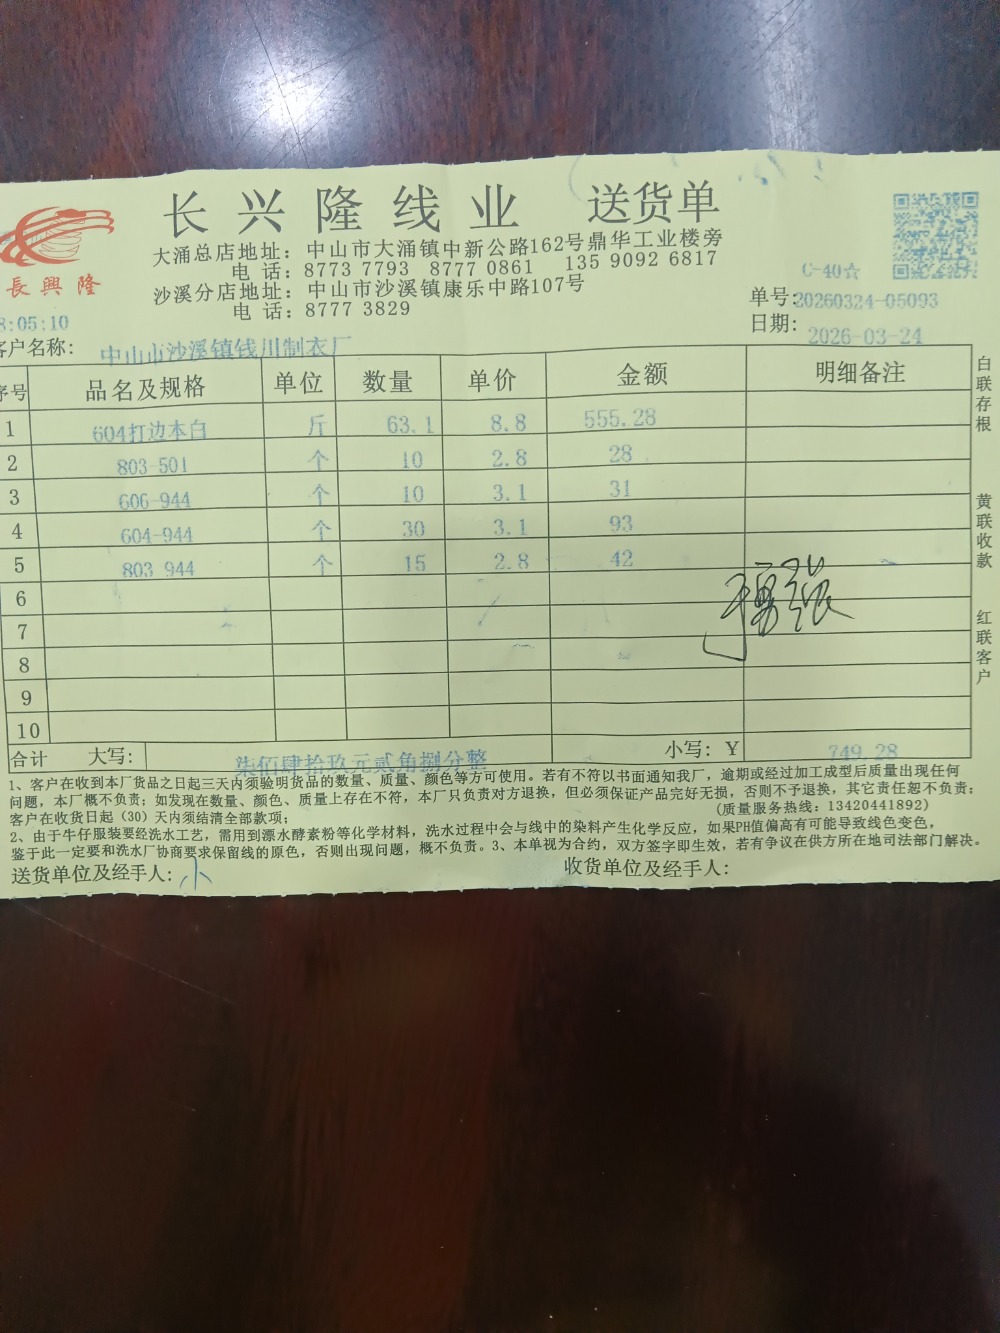 长兴隆线业 送货单
長興隆
大涌总店地址：中山市大涌镇中新公路162号鼎华工业楼旁
电 话：8773 7793 8777 0861 135 9092 6817
沙溪分店地址：中山市沙溪镇康乐中路107号
电 话：8777 3829
C-40☆
单号：20260324-05093
8:05:10
日期：2026-03-24
客户名称：中山市沙溪镇钱川制衣厂
序号 品名及规格 单位 数量 单价 金额 明细备注
1 604打边本白 斤 63.1 8.8 555.28
2 803-501 个 10 2.8 28
3 606-944 个 10 3.1 31
4 604-944 个 30 3.1 93
5 803-944 个 15 2.8 42
6
7
8
9
10
合计 大写：柒佰肆拾玖元贰角捌分整 小写：Y 749.28
白联存根
黄联收款
红联客户
1、客户在收到本厂货品之日起三天内须验明货品的数量、质量、颜色等方可使用。若有不符以书面通知我厂，逾期或经过加工成型后质量出现任何
问题，本厂概不负责；如发现在数量、颜色、质量上存在不符，本厂只负责对方退换，但必须保证产品完好无损，否则不予退换，其它责任恕不负责；
客户在收货日起（30）天内须结清全部款项； (质量服务热线：13420441892)
2、由于牛仔服装要经洗水工艺，需用到漂水酵素粉等化学材料，洗水过程中会与线中的染料产生化学反应，如果PH值偏高有可能导致线色变色，
鉴于此一定要和洗水厂协商要求保留线的原色，否则出现问题，概不负责。3、本单视为合约，双方签字即生效，若有争议在供方所在地司法部门解决。
送货单位及经手人：小 收货单位及经手人：